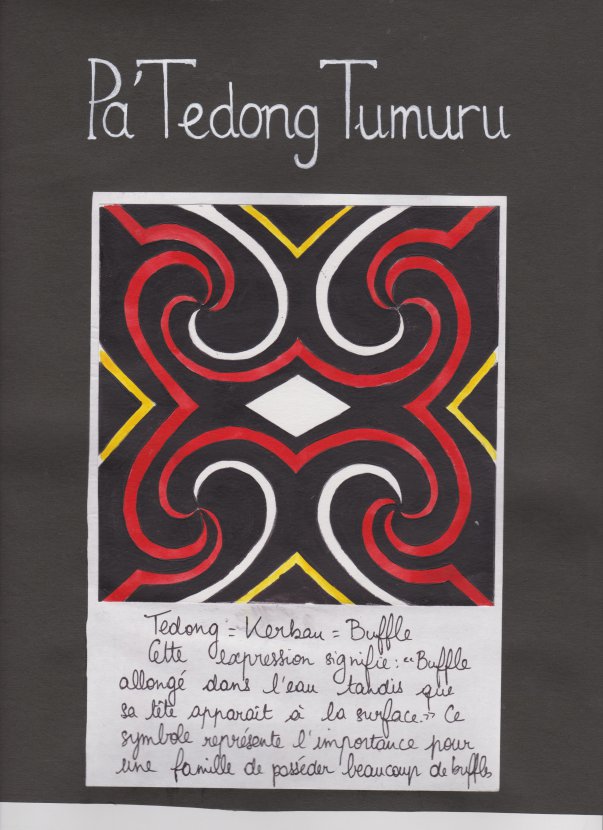 Pa'Tedong Tumuru
Tedong = Kerbau = Buffle
Cette expression signifie : "Buffle
allongé dans l'eau tandis que
sa tête apparaît à la surface." Ce
symbole représente l'importance pour
une famille de posséder beaucoup de buffles